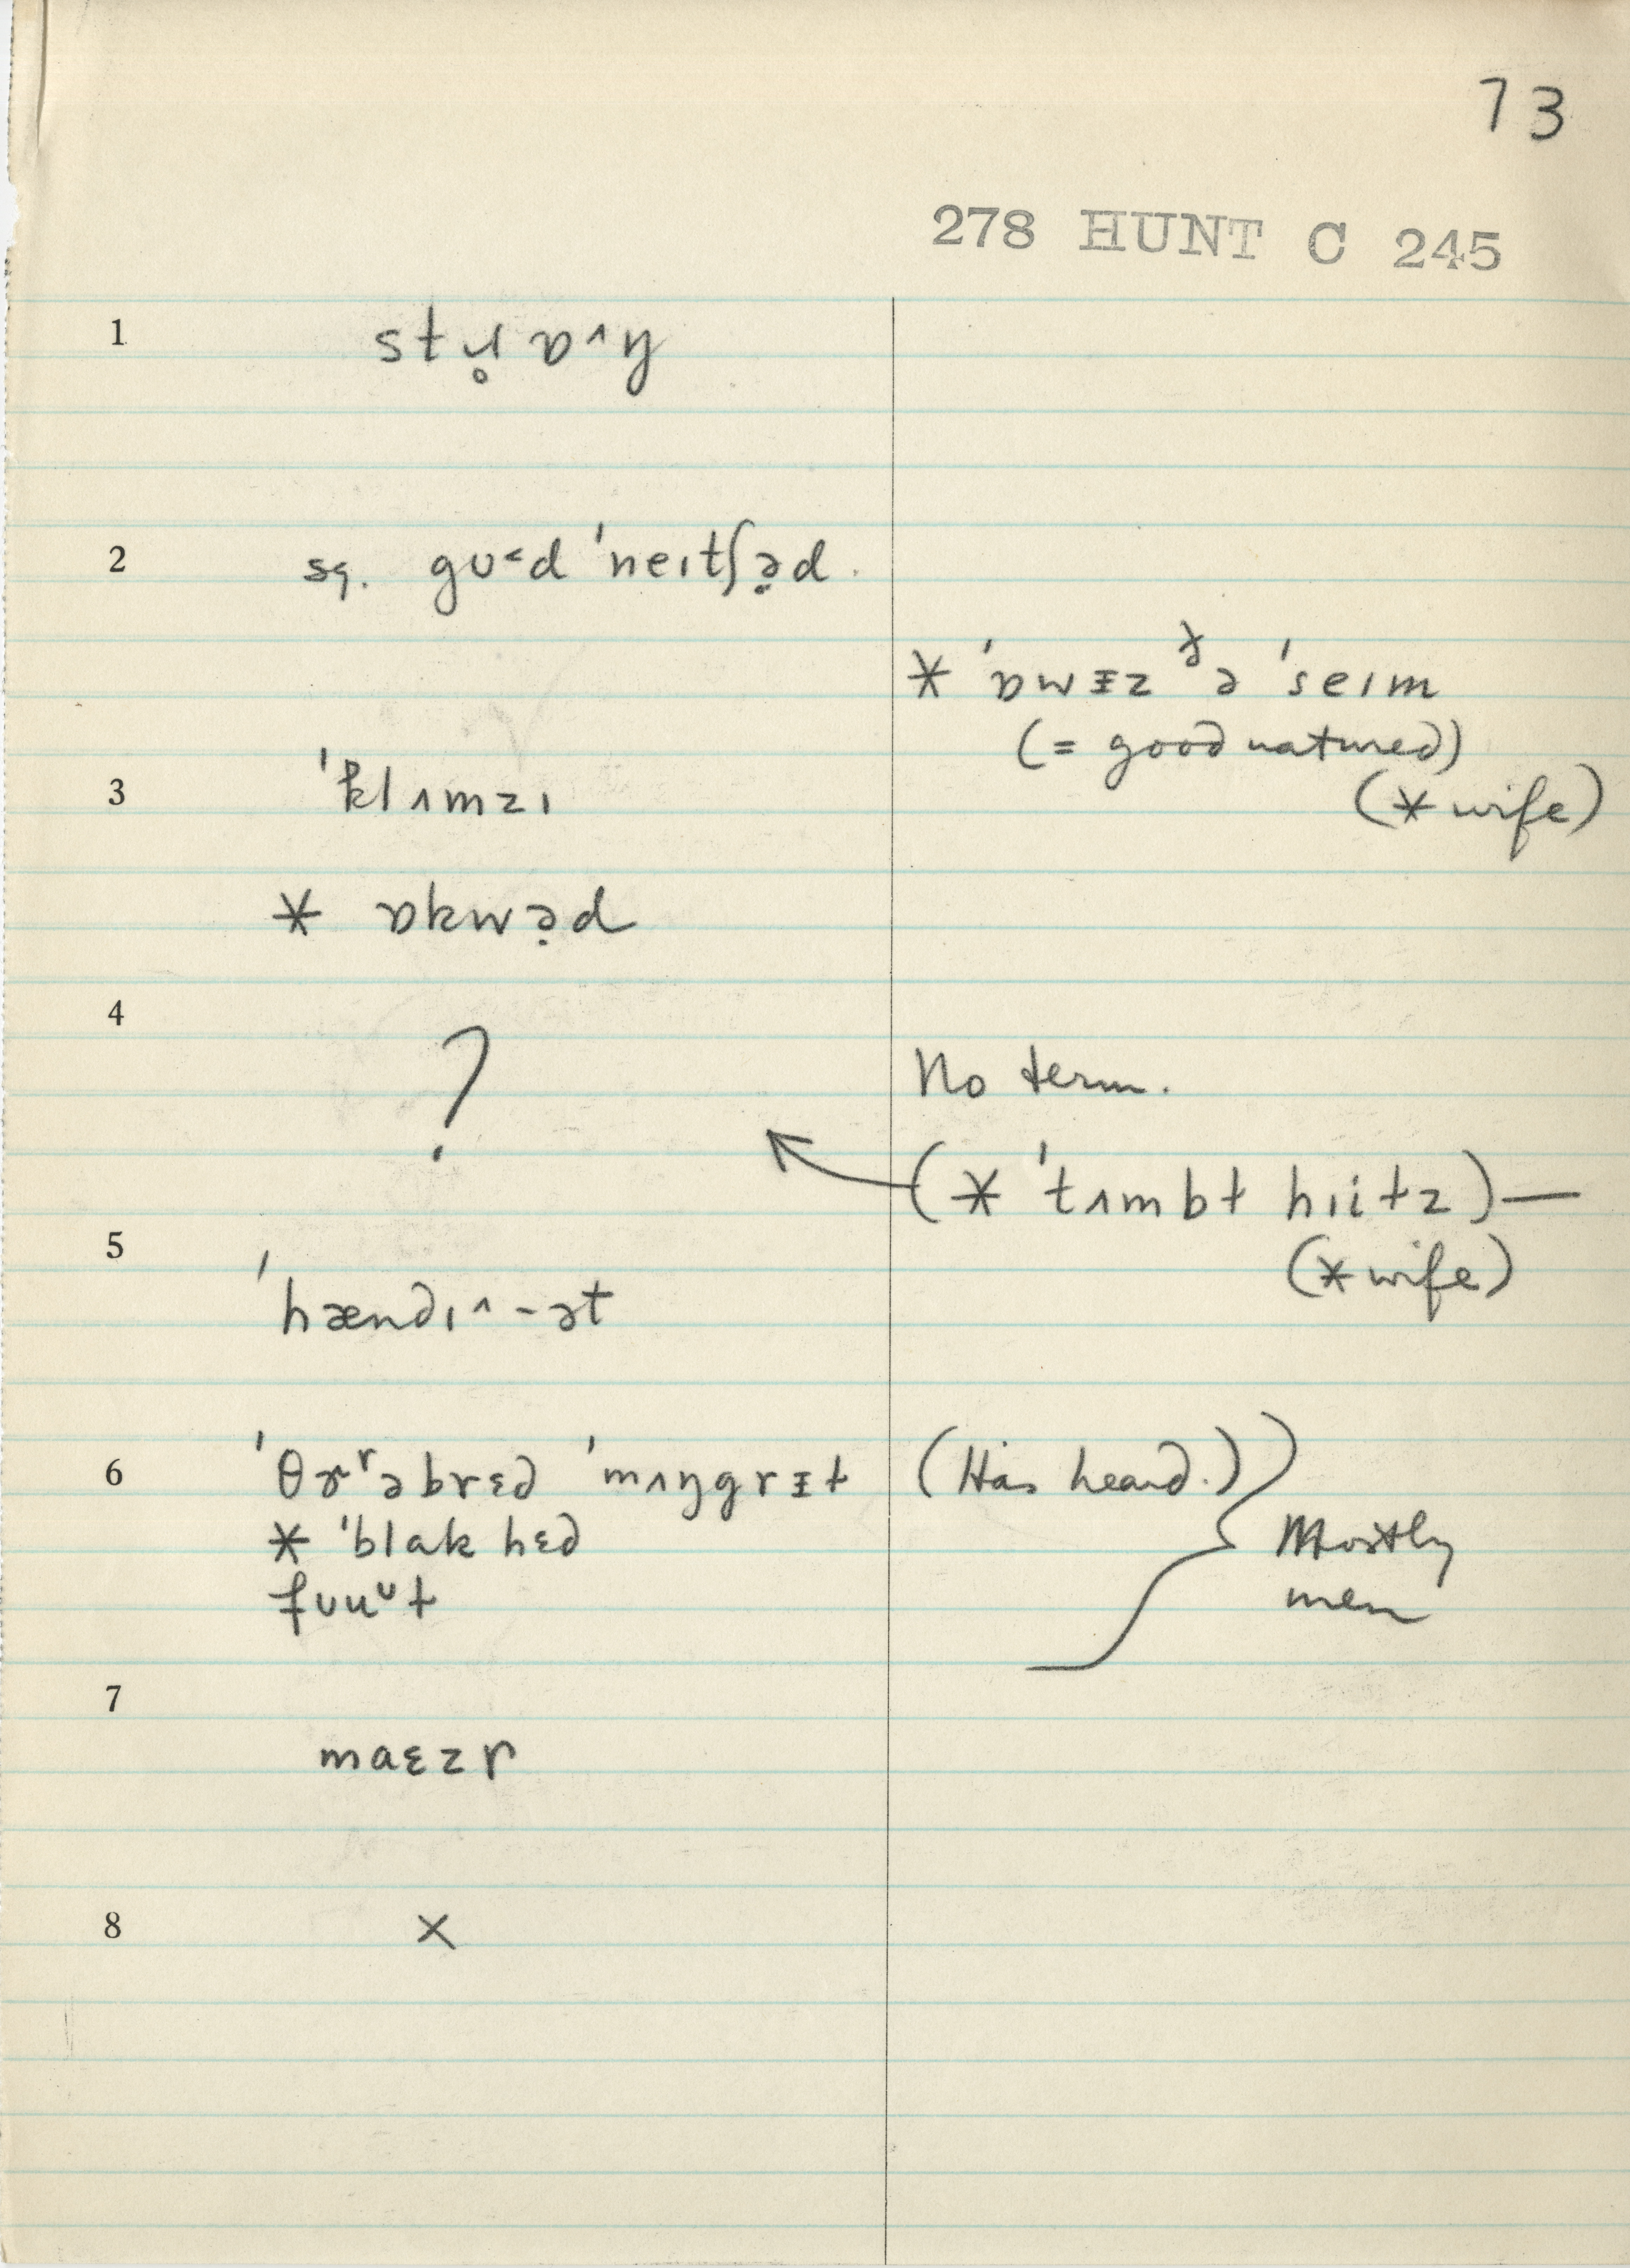 73
278 HUNT C 245
1 stɹ̥ɒ^ŋ
2 sq. gʊ˂d ˈneɪtʃə̣d.
* ˈɒwɪz ðə ˈseɪm
(= good natured)
(* wife)
3 ˈklʌmzɪ
* ɒkwə̣d
4 ?
No term.
(* ˈtʌmbt hɪitz) —
(* wife)
5 ˈhændɪ^-ət
6 ˈθɚʳəbrɛd ˈmʌŋgrɪt (Has heard.)
* ˈblak hɛd
fʊuᶷt
Mostly
men
7 maɛzr
8 x